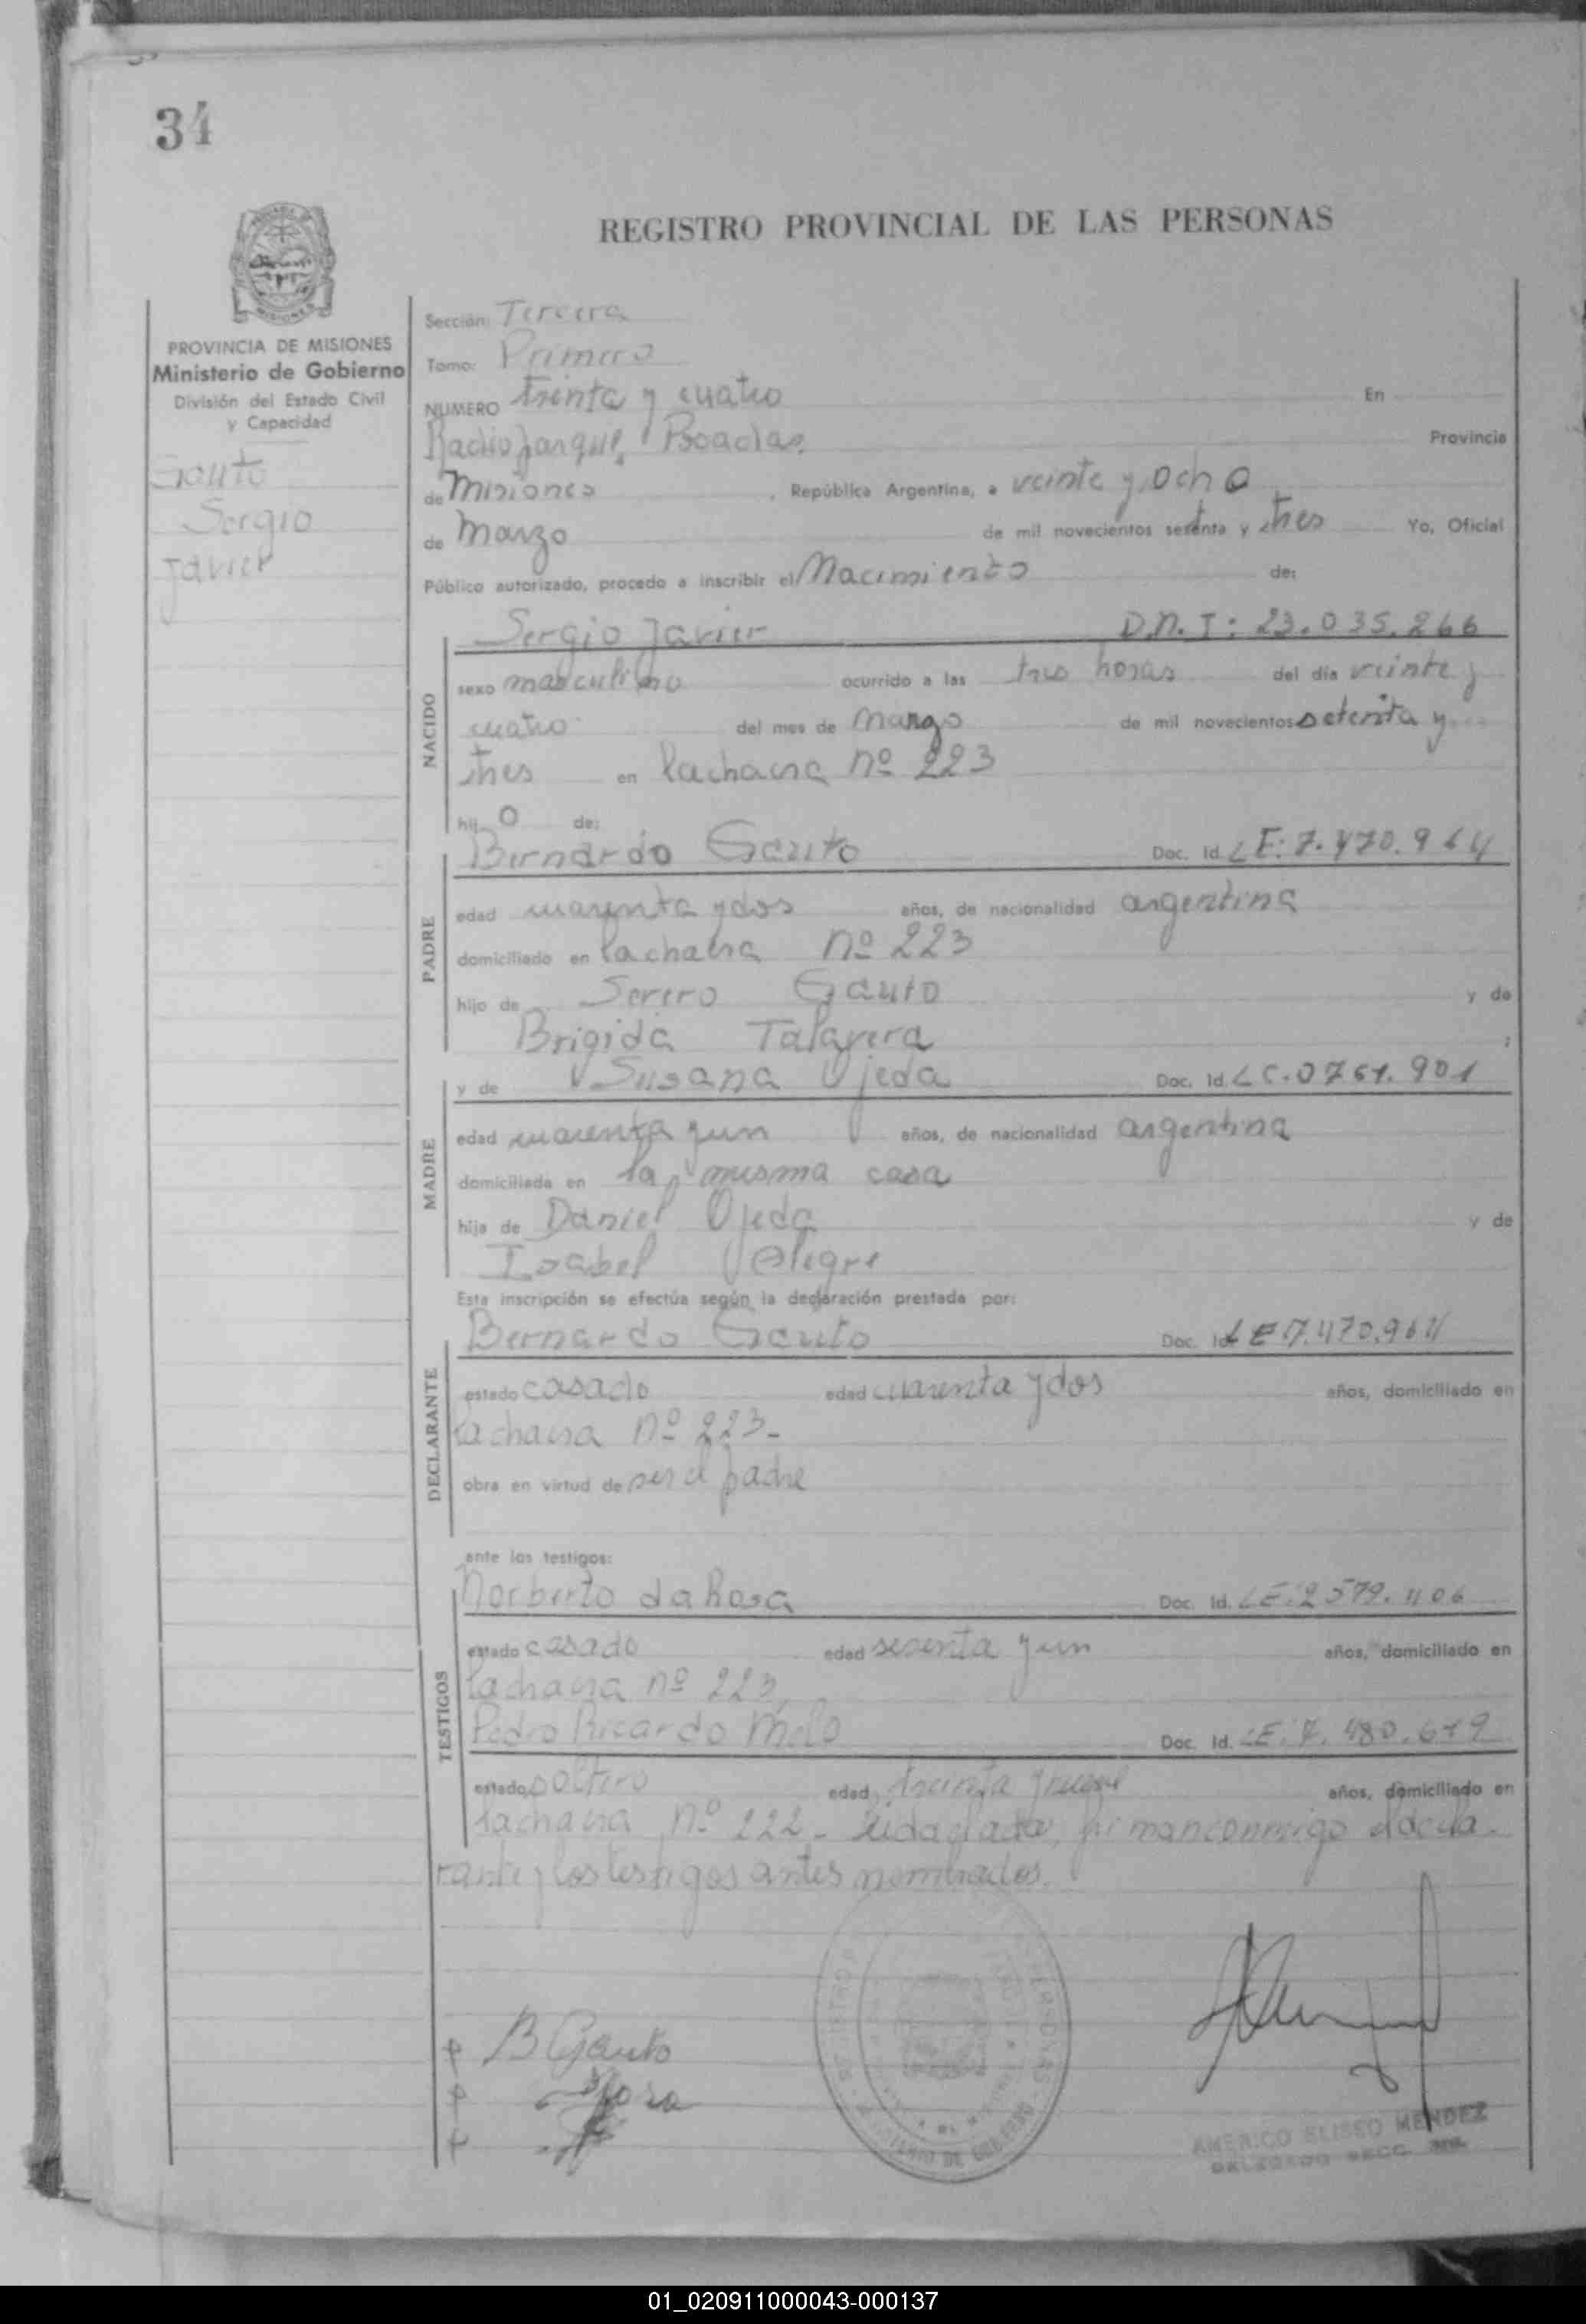 34
REGISTRO PROVINCIAL DE LAS PERSONAS
PROVINCIA DE MISIONES
Ministerio de Gobierno
División del Estado Civil
y Capacidad
Gauto
Sergio
Javier
Sección: Tercera
Tomo: Primero
NUMERO treinta y cuatro En
Radioparque, Posadas, Provincia
de Misiones, República Argentina, a veinte y ocho
de Marzo de mil novecientos setenta y tres Yo, Oficial
Público autorizado, procedo a inscribir el Nacimiento de:
Sergio Javier D.N.I: 23.035.266
NACIDO
sexo masculino ocurrido a las tres horas del día veinte y
cuatro del mes de Marzo de mil novecientos setenta y
tres en la chacra nº 223
hij o de:
PADRE
Bernardo Gauto Doc. Id. LE: 7.470.964
edad cuarenta y dos años, de nacionalidad argentina
domiciliado en la chacra nº 223
hijo de Severo Gauto y de
Brigida Talavera ;
MADRE
y de Susana Ojeda Doc. Id. LC.0761.901
edad cuarenta y un años, de nacionalidad argentina
domiciliada en la misma casa
hija de Daniel Ojeda y de
Isabel Alegre
Esta inscripción se efectúa según la declaración prestada por:
DECLARANTE
Bernardo Gauto Doc. Id. LE 7.470.964
estado casado edad cuarenta y dos años, domiciliado en
la chacra nº 223-
obra en virtud de ser el padre
ante los testigos:
TESTIGOS
Norberto da Rosa Doc. Id. LE: 2579.406
estado casado edad sesenta y un años, domiciliado en
la chacra nº 223,
Pedro Ricardo Melo Doc. Id. LE: 7.480.679
estado soltero edad treinta y nueve años, domiciliado en
la chacra nº 222- Leida el acta, firman conmigo el decla-
rante y los testigos antes nombrados.
B Gauto
Rosa
MINISTERIO DE GOBIERNO
AMERICO ELISEO MENDEZ
DELEGADO SECC. 3RA.
01_020911000043-000137